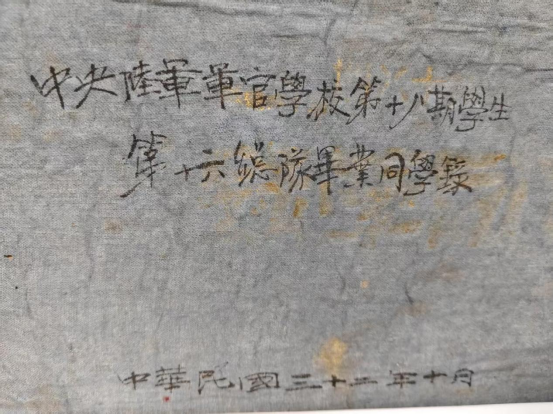 中央陸軍軍官學校第十八期學生
第十六總隊畢業同學錄
中華民國三十二年十月